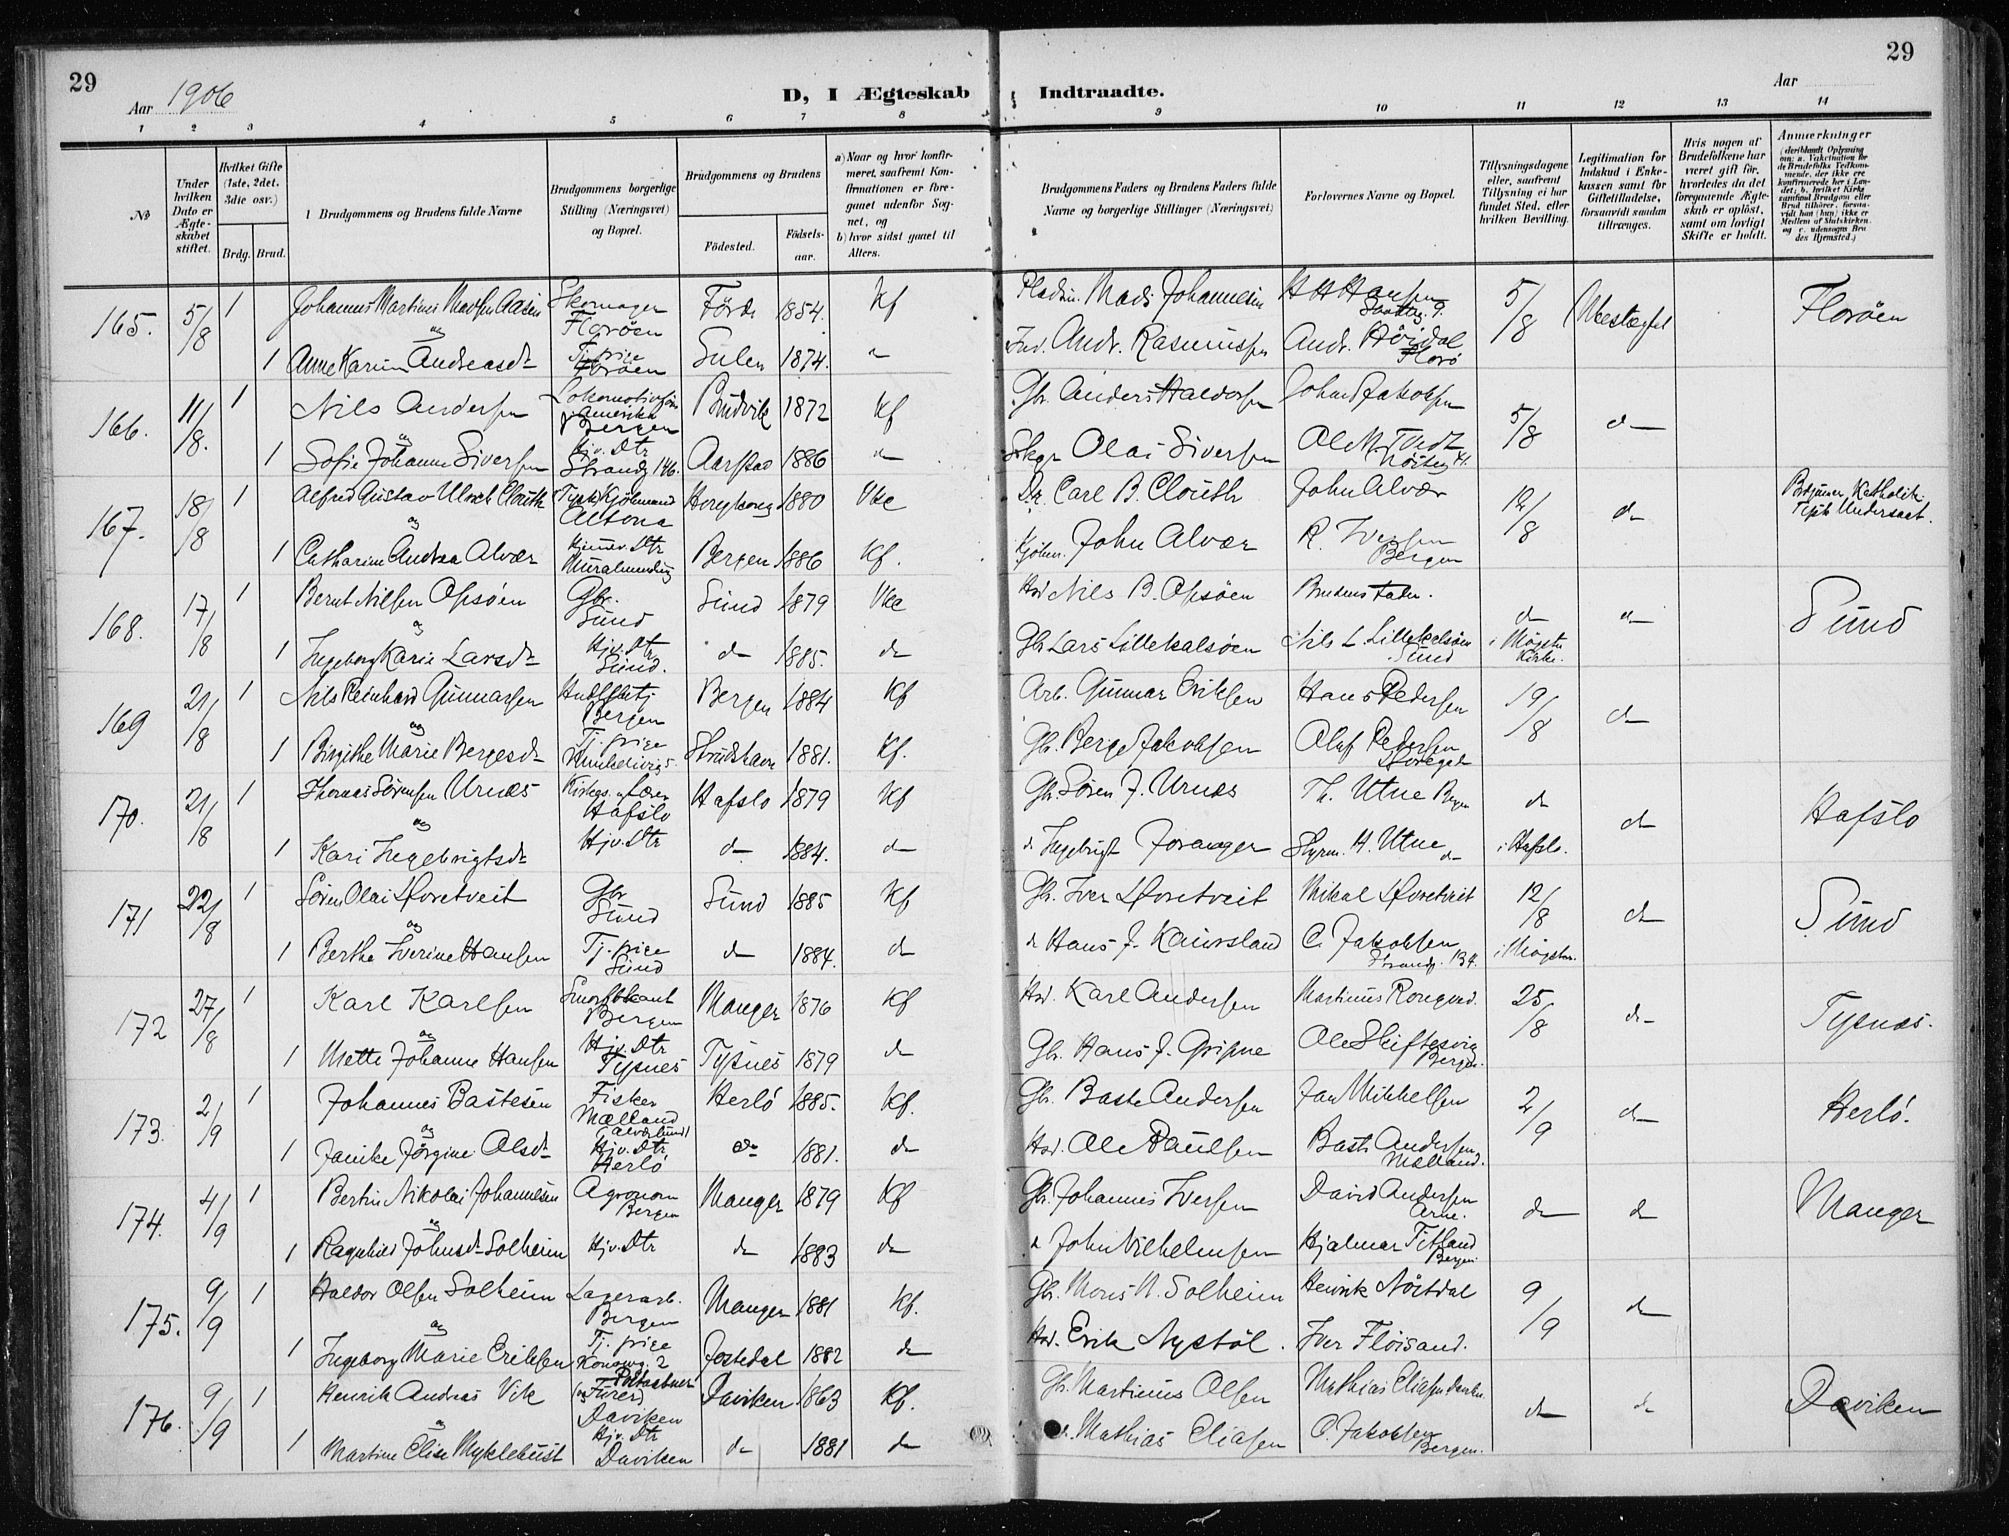 29
Aar 1906
D, I Ægteskab Indtraadte.
Aar
29
1 2 3 4 5 6 7 8 9 10 11 12 13 14
No
Under hvilken Dato er Ægteskabet stiftet.
Hvilket Gifte (1ste, 2det, 3die osv.)
Brdg. Brud.
Brudgommens og Brudens fulde Navne
Brudgommens borgerlige Stilling (Næringsvei) og Bopæl.
Brudgommens og Brudens
Födested.
Födselsaar.
a) Naar og hvor konfirmeret, saafremt Konfirmationen er foregaaet udenfor Sognet, og
b) hvor sidst gaaet til Alters.
Brudgommens Faders og Brudens Faders fulde Navne og borgerlige Stillinger (Næringsvei)
Forlovernes Navne og Bopæl.
Tillysningsdagene eller, saafremt Tillysning ei har fundet Sted, efter hvilken Bevilling.
Legitimation for Indskud i Enkekassen samt for Giftetilladelse, forsaavidt saadan tiltrænges.
Hvis nogen af Brudefolkene har været gift før, hvorledes da det foregaaende Ægteskab er oplöst, samt om lovligt Skifte er holdt.
Anmærkninger
165. 5/8 1 Johannes Martinus Madsen Aasen Skomager Florøen Førde 1854. Kf Pladsm. Mads Johannesen H H Hansen 5/8 Florøen
og
1 Anne Karine Andreasdr Tj. pige Florøen Sulen 1874. Ind. Andr. Rasmussen Andr. Höidal Florø
166. 11/8. 1 Nils Andersen Amerika Bergen Bruvik 1872 Kf Gbr. Anders Haldorsen Johan Jakobsen 5/8 d
og
1 Sofie Johanne Siversen Hjv. Dtr Strandg 146. Aarstad 1886 Olai Siversen Ole M. Tvedt
167. 18/8 1 Alfred Gustav Ulrich Clouth Tysk Kjöbmand Altona Hongkong 1880 Dr. Carl B. Clouth John Alvær 12/8 d Brudgommen Katholik. Tysk Undersaat.
og
1 Catharine Andrea Alvær Hjemv. Dtr Bergen 1886 Kf. Kjöbm. John Alvær R. Iversen Bergen
168. 17/8 1 Bernt Nilsen Opsøen Gbr. Sund Sund 1879 Nils B. Opsøen Brudens Fader. d d Sund
og
1 Ingeborg Karie Larsdr Hjv. Dtr Sund. d 1885. d Gbr Lars Lillekalsöen Nils L. Lillekalsöen Sund i Møgster Kirke.
169 21/8 1 Nils Reinhard Gunnarsen Bergen Bergen 1884 Kf Arb. Gunnar Eriksen Hans Pedersen 19/8 d
og
1 Birgithe Marie Bergesdr Tj. pige 1881. Kf. Gbr. Berge Jakobsen Oluf Pedersen
170. 21/8 1 Thomas Sörensen Urnæs Hafslo Hafslo 1879 Kf Gbr. Sören J. Urnæs Th. Utne Bergen d d Hafslo
og
1 Kari Ingebrigtsdr Hjv. Dtr d 1884. d d Ingebrigt Joranger Styrm. H. Utne d i Hafslo.
171 22/8 1 Sören Olai Hovetveit Gbr Sund Sund 1885 Kf Gbr. Iver Hovetveit Mikal Hovetveit 12/8 d Sund
og
1 Berthe Iverine Hansen Tj. pige Sund d 1884. d d Hans J. Kaursland C. Jakobsen Strandg. 134. i Møgster.
172 27/8 1 Karl Karlsen Bergen Manger 1876 Kf Karl Andersen Martinus 25/8 d Tysnæs.
og
1 Mette Johanne Hansen Hjv. Dtr Tysnes Tysnes 1879 d Gbr. Hans J. Gripne Ole Skiftesvig Bergen.
173. 2/9 1 Johannes Bastesen Fisker Mælland Alversund Herlö 1885. Kf. Gbr. Baste Andersen Jan Mikkelsen 2/9 d Herlö.
og
1 Janike Jörgine Olsdr Hjv. Dtr Herlö d 1881. d Ole Paulsen Baste Andersen Mælland.
174. 4/9 1 Bertin Nikolai Johannesen Agronom Bergen Manger 1879 Kf Gbr. Johannes Iversen David Andersen Arne. d d Manger
og
1 Ragnhild Johnsdr Solheim Hjv. Dtr d 1883 d d John Vilhelmsen Hjalmar Titland Bergen
175. 9/9 1 Haldor Olsen Solheim Lagerarb. Bergen Manger 1881 Kf. Gbr. Mons N. Solheim Henrik Nöstdal 9/9 d
og
1 Ingeborg Marie Eriksen Tj. pige Konowg. 2 Jostedal 1882 d Erik Nystöl. Iver Flöisand.
176. 9/9 1 Henrik Andreas Vik Daviken Daviken 1863 Kf. Gbr. Martinus Olsen Mathias Eliasen d d Daviken
og
1 Martine Elise Myklebust Hjv. Dtr Daviken d 1881 d d. Mathias Eliasen O. Jakobsen Bergen.